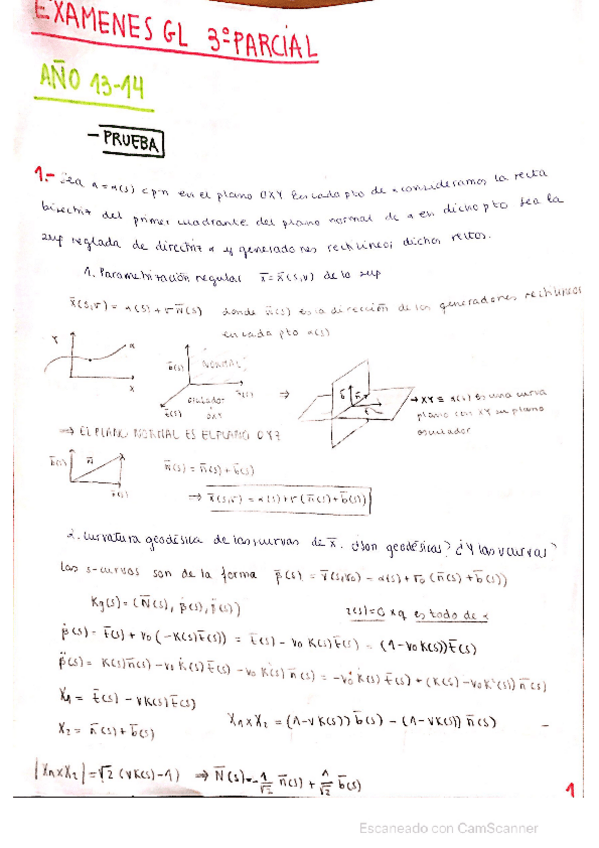 EXAMENES GL 3º PARCIAL
AÑO 13-14
- PRUEBA
1.- Sea α = α(s) cpn en el plano OXY En cada pto de α consideramos la recta
bisectriz del primer cuadrante del plano normal de α en dicho pto sea la
sup reglada de directriz α y generadores rectilíneos dichas rectas.
1. Parametrización regular x̄ = x̄(s,v) de la sup
x̄(s,v) = α(s) + v N̄(s) donde n̄(s) es la dirección de los generadores rectilíneos
en cada pto α(s)
Y
α
X
b̄(s)
NORMAL
n̄(s)
t̄(s)
osculador
OXY
⇒
b̄
n̄
t
→ XY ≡ α(s) es una curva
plana con XY su plano
osculador
⇒ EL PLANO NORMAL ES EL PLANO OYZ
b̄(s)
n̄
n̄(s)
n̄(s) = n̄(s) + b̄(s)
⇒ x̄(s,v) = α(s) + v (n̄(s) + b̄(s))
2. Curvatura geodésica de las s curvas de x̄. ¿Son geodésicas? ¿Y las v curvas?
Las s-curvas son de la forma β̄(s) = x̄(s,v₀) = α(s) + v₀ (n̄(s) + b̄(s))
Kg(s) = (N̄(s), β̇(s), β̈(s)) τ(s) = 0 xq es todo de α
β̇(s) = t̄(s) + v₀ (-K(s) t̄(s)) = t̄(s) - v₀ K(s) t̄(s) = (1 - v₀ K(s)) t̄(s)
β̈(s) = K(s) n̄(s) - v₀ K̇(s) t̄(s) - v₀ K(s) n̄(s) = -v₀ K̇(s) t̄(s) + (K(s) - v₀ K²(s)) n̄(s)
X₁ = t̄(s) - v K(s) t̄(s)
X₂ = n̄(s) + b̄(s)
X₁ × X₂ = (1 - vK(s)) b̄(s) - (1 - vK(s)) n̄(s)
|X₁ × X₂| = √2 (vK(s) - 1) ⇒ N̄(s) = -1/√2 n̄(s) + 1/√2 b̄(s)
1
Escaneado con CamScanner